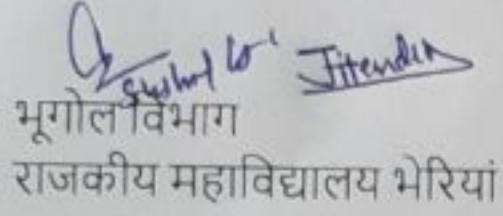 Jitender
भूगोल विभाग
राजकीय महाविद्यालय भेरियां